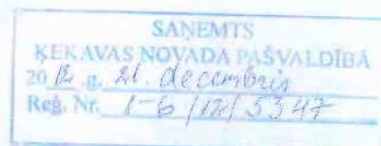 SAŅEMTS
ĶEKAVAS NOVADA PAŠVALDĪBĀ
2012. g. 21. decembris
Reģ. Nr. 1-6/12/5347